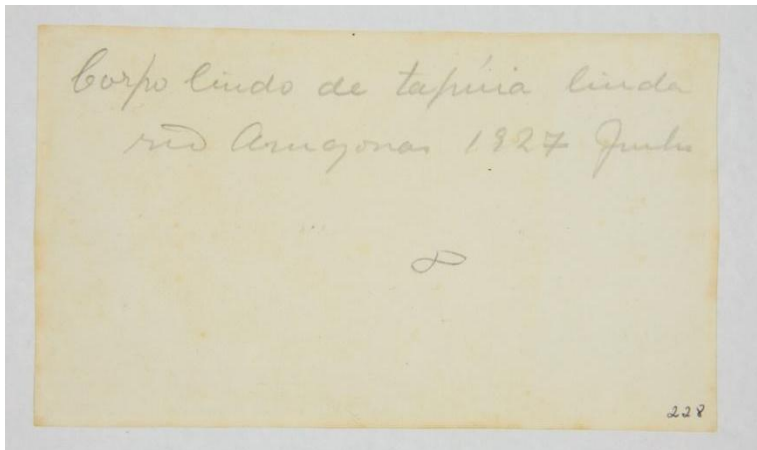 Corpo lindo de tapúia linda
rio Amazonas 1927 Junho
228